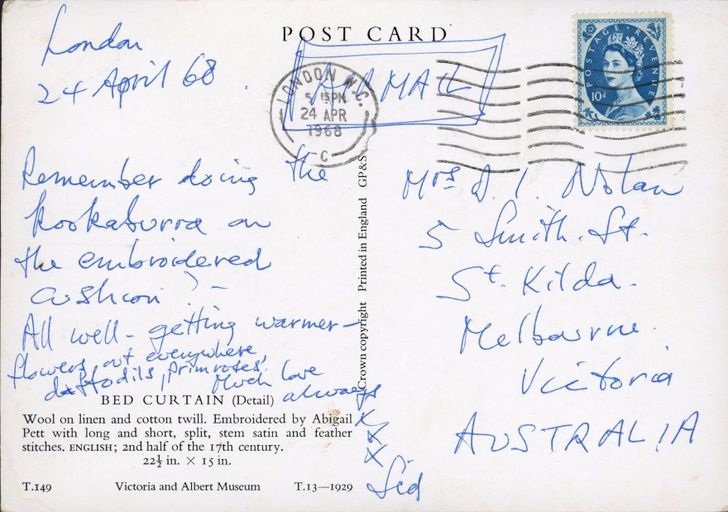 POST CARD
London
24 April 68.
AIR MAIL
LONDON W.C.
5 15 PM
24 APR
1968
C
POSTAGE REVENUE
10d
Remember doing the
Kookaburra on
the embroidered
cushion?-
All well - getting warmer -
flowers out everywhere,
daffodils, primroses. Much love
always
x
x
x
Sid
Mrs D. I. Nolan
5 Smith. St.
St. Kilda.
Melbourne.
Victoria
AUSTRALIA
Crown copyright Printed in England GP&S
BED CURTAIN (Detail)
Wool on linen and cotton twill. Embroidered by Abigail
Pett with long and short, split, stem satin and feather
stitches. ENGLISH; 2nd half of the 17th century.
22½ in. × 15 in.
T.149 Victoria and Albert Museum T.13—1929